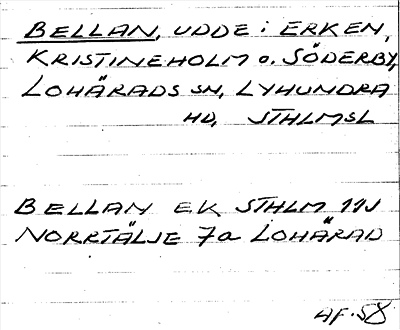 BELLAN, UDDE i ERKEN,
KRISTINEHOLM o. SÖDERBY,
LOHÄRADS SN, LYHUNDRA
HD, STHLMSL
BELLAN EK STHLM 11J
NORRTÄLJE 7a LOHÄRAD
AF. 58